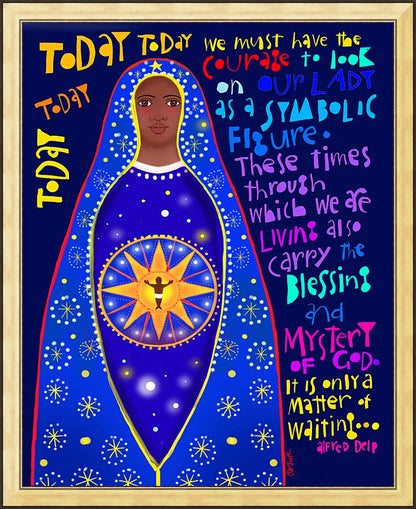 TODAY TODAY we must have the
TODAY
TODAY
courage to look
on OUR LADY
as a SYMBOLIC
FIGURE.
These times
through
which we are
LIVING also
carry the
Blessing
and
MYSTERY
OF GOD.
It is only a
matter of
waiting...
alfred Delp